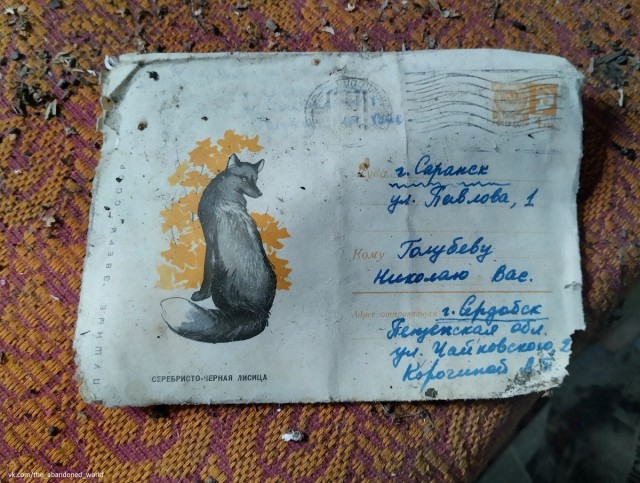 ПУШНЫЕ ЗВЕРИ СССР
СЕРЕБРИСТО-ЧЕРНАЯ ЛИСИЦА
Куда г. Саранск
ул. Павлова, 1
Кому Голубеву
Николаю Вас.
Адрес отправителя г. Сердобск
Пензенская обл.
ул. Чайковского, 2
Корогиной
vk.com/the_abandoned_world